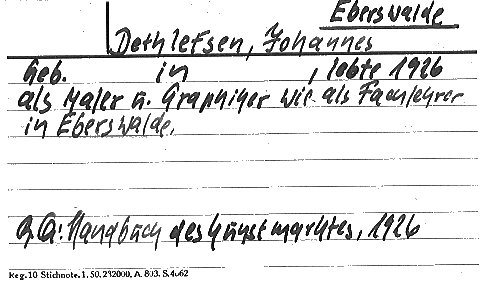 Eberswalde
Dethlefsen, Johannes
Geb. in , lebte 1926
als Maler u. Graphiker wie als Fachlehrer
in Eberswalde.
Q.A: Handbuch des Kunstmarktes, 1926
Reg. 10 Stichnote. 1. 50. 232000. A. 803. S. 4662